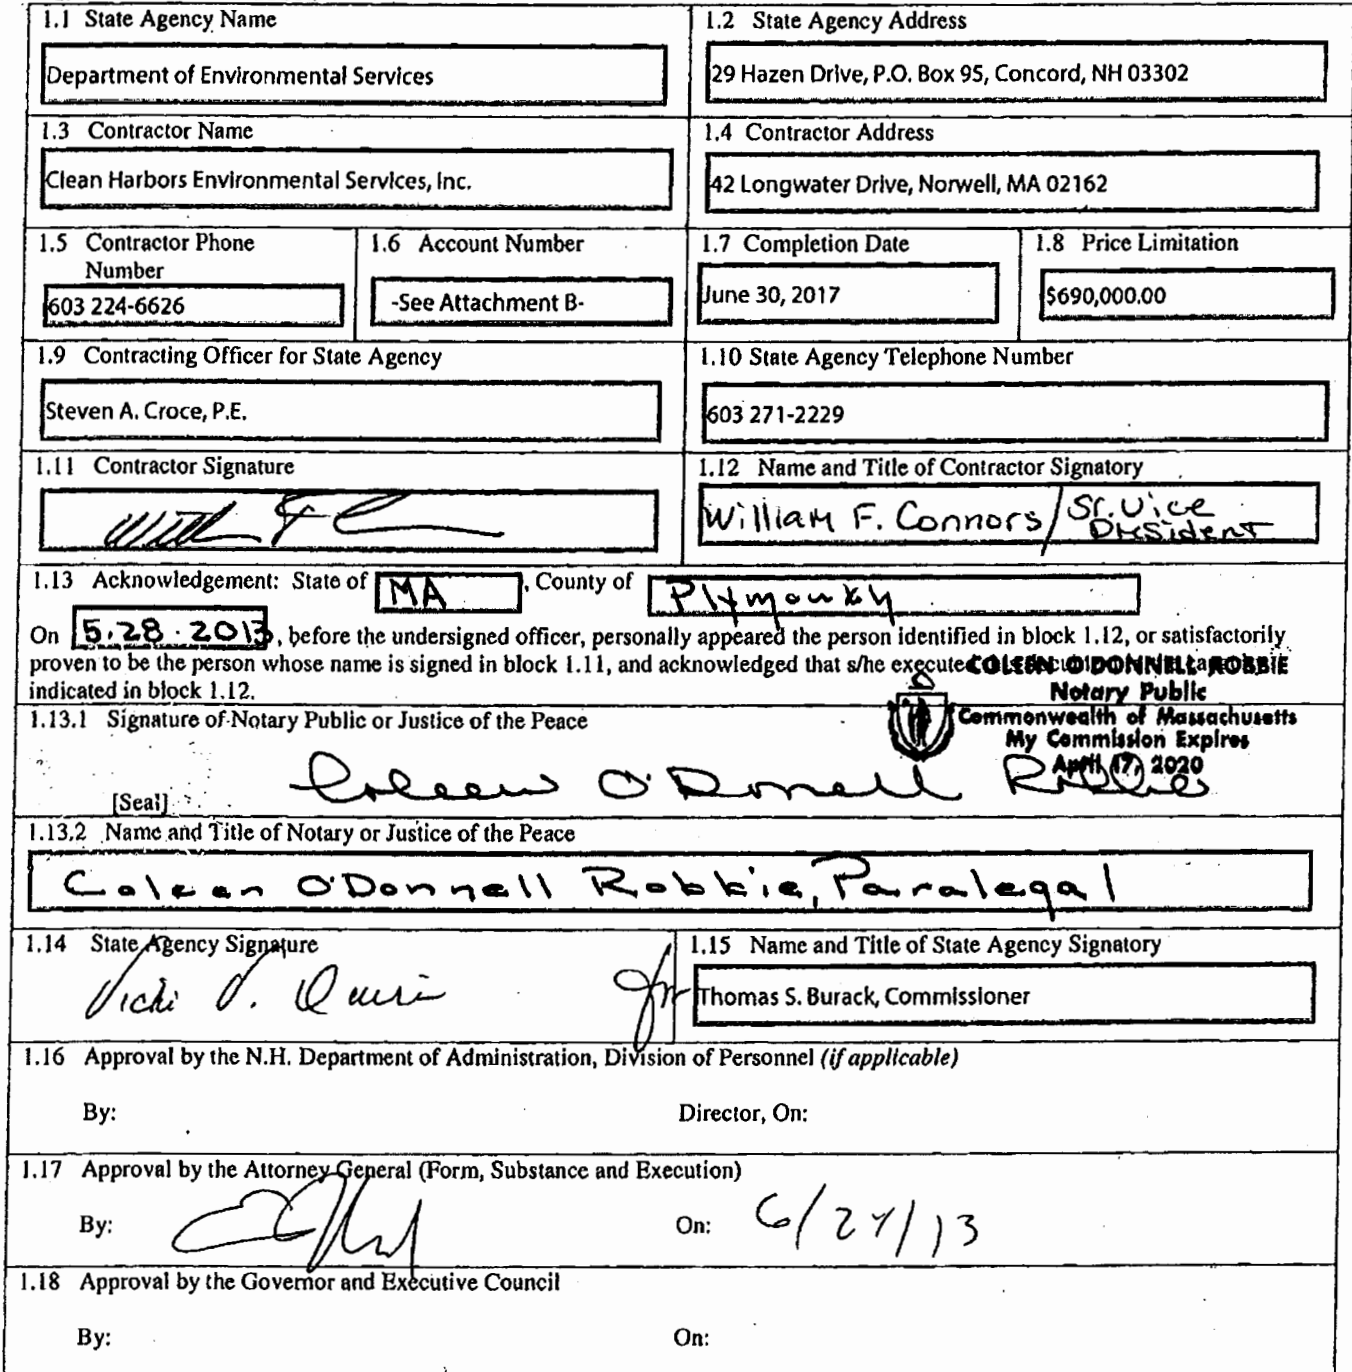 1.1 State Agency Name
Department of Environmental Services
1.2 State Agency Address
29 Hazen Drive, P.O. Box 95, Concord, NH 03302
1.3 Contractor Name
Clean Harbors Environmental Services, Inc.
1.4 Contractor Address
42 Longwater Drive, Norwell, MA 02162
1.5 Contractor Phone
Number
603 224-6626
1.6 Account Number
-See Attachment B-
1.7 Completion Date
June 30, 2017
1.8 Price Limitation
$690,000.00
1.9 Contracting Officer for State Agency
Steven A. Croce, P.E.
1.10 State Agency Telephone Number
603 271-2229
1.11 Contractor Signature
1.12 Name and Title of Contractor Signatory
William F. Connors/Sr. Vice
President
1.13 Acknowledgement: State of MA, County of Plymouth
On 5.28.2013, before the undersigned officer, personally appeared the person identified in block 1.12, or satisfactorily
proven to be the person whose name is signed in block 1.11, and acknowledged that s/he execute
indicated in block 1.12.
COLEEN O'DONNELL ROBBIE
Notary Public
Commonwealth of Massachusetts
My Commission Expires
April 17, 2020
1.13.1 Signature of Notary Public or Justice of the Peace
Coleen O'Donnell Robbie
[Seal]
1.13.2 Name and Title of Notary or Justice of the Peace
Coleen O'Donnell Robbie, Paralegal
1.14 State Agency Signature
Vicki V. Quiram for
1.15 Name and Title of State Agency Signatory
Thomas S. Burack, Commissioner
1.16 Approval by the N.H. Department of Administration, Division of Personnel (if applicable)
By:
Director, On:
1.17 Approval by the Attorney General (Form, Substance and Execution)
By:
On: 6/27/13
1.18 Approval by the Governor and Executive Council
By:
On: